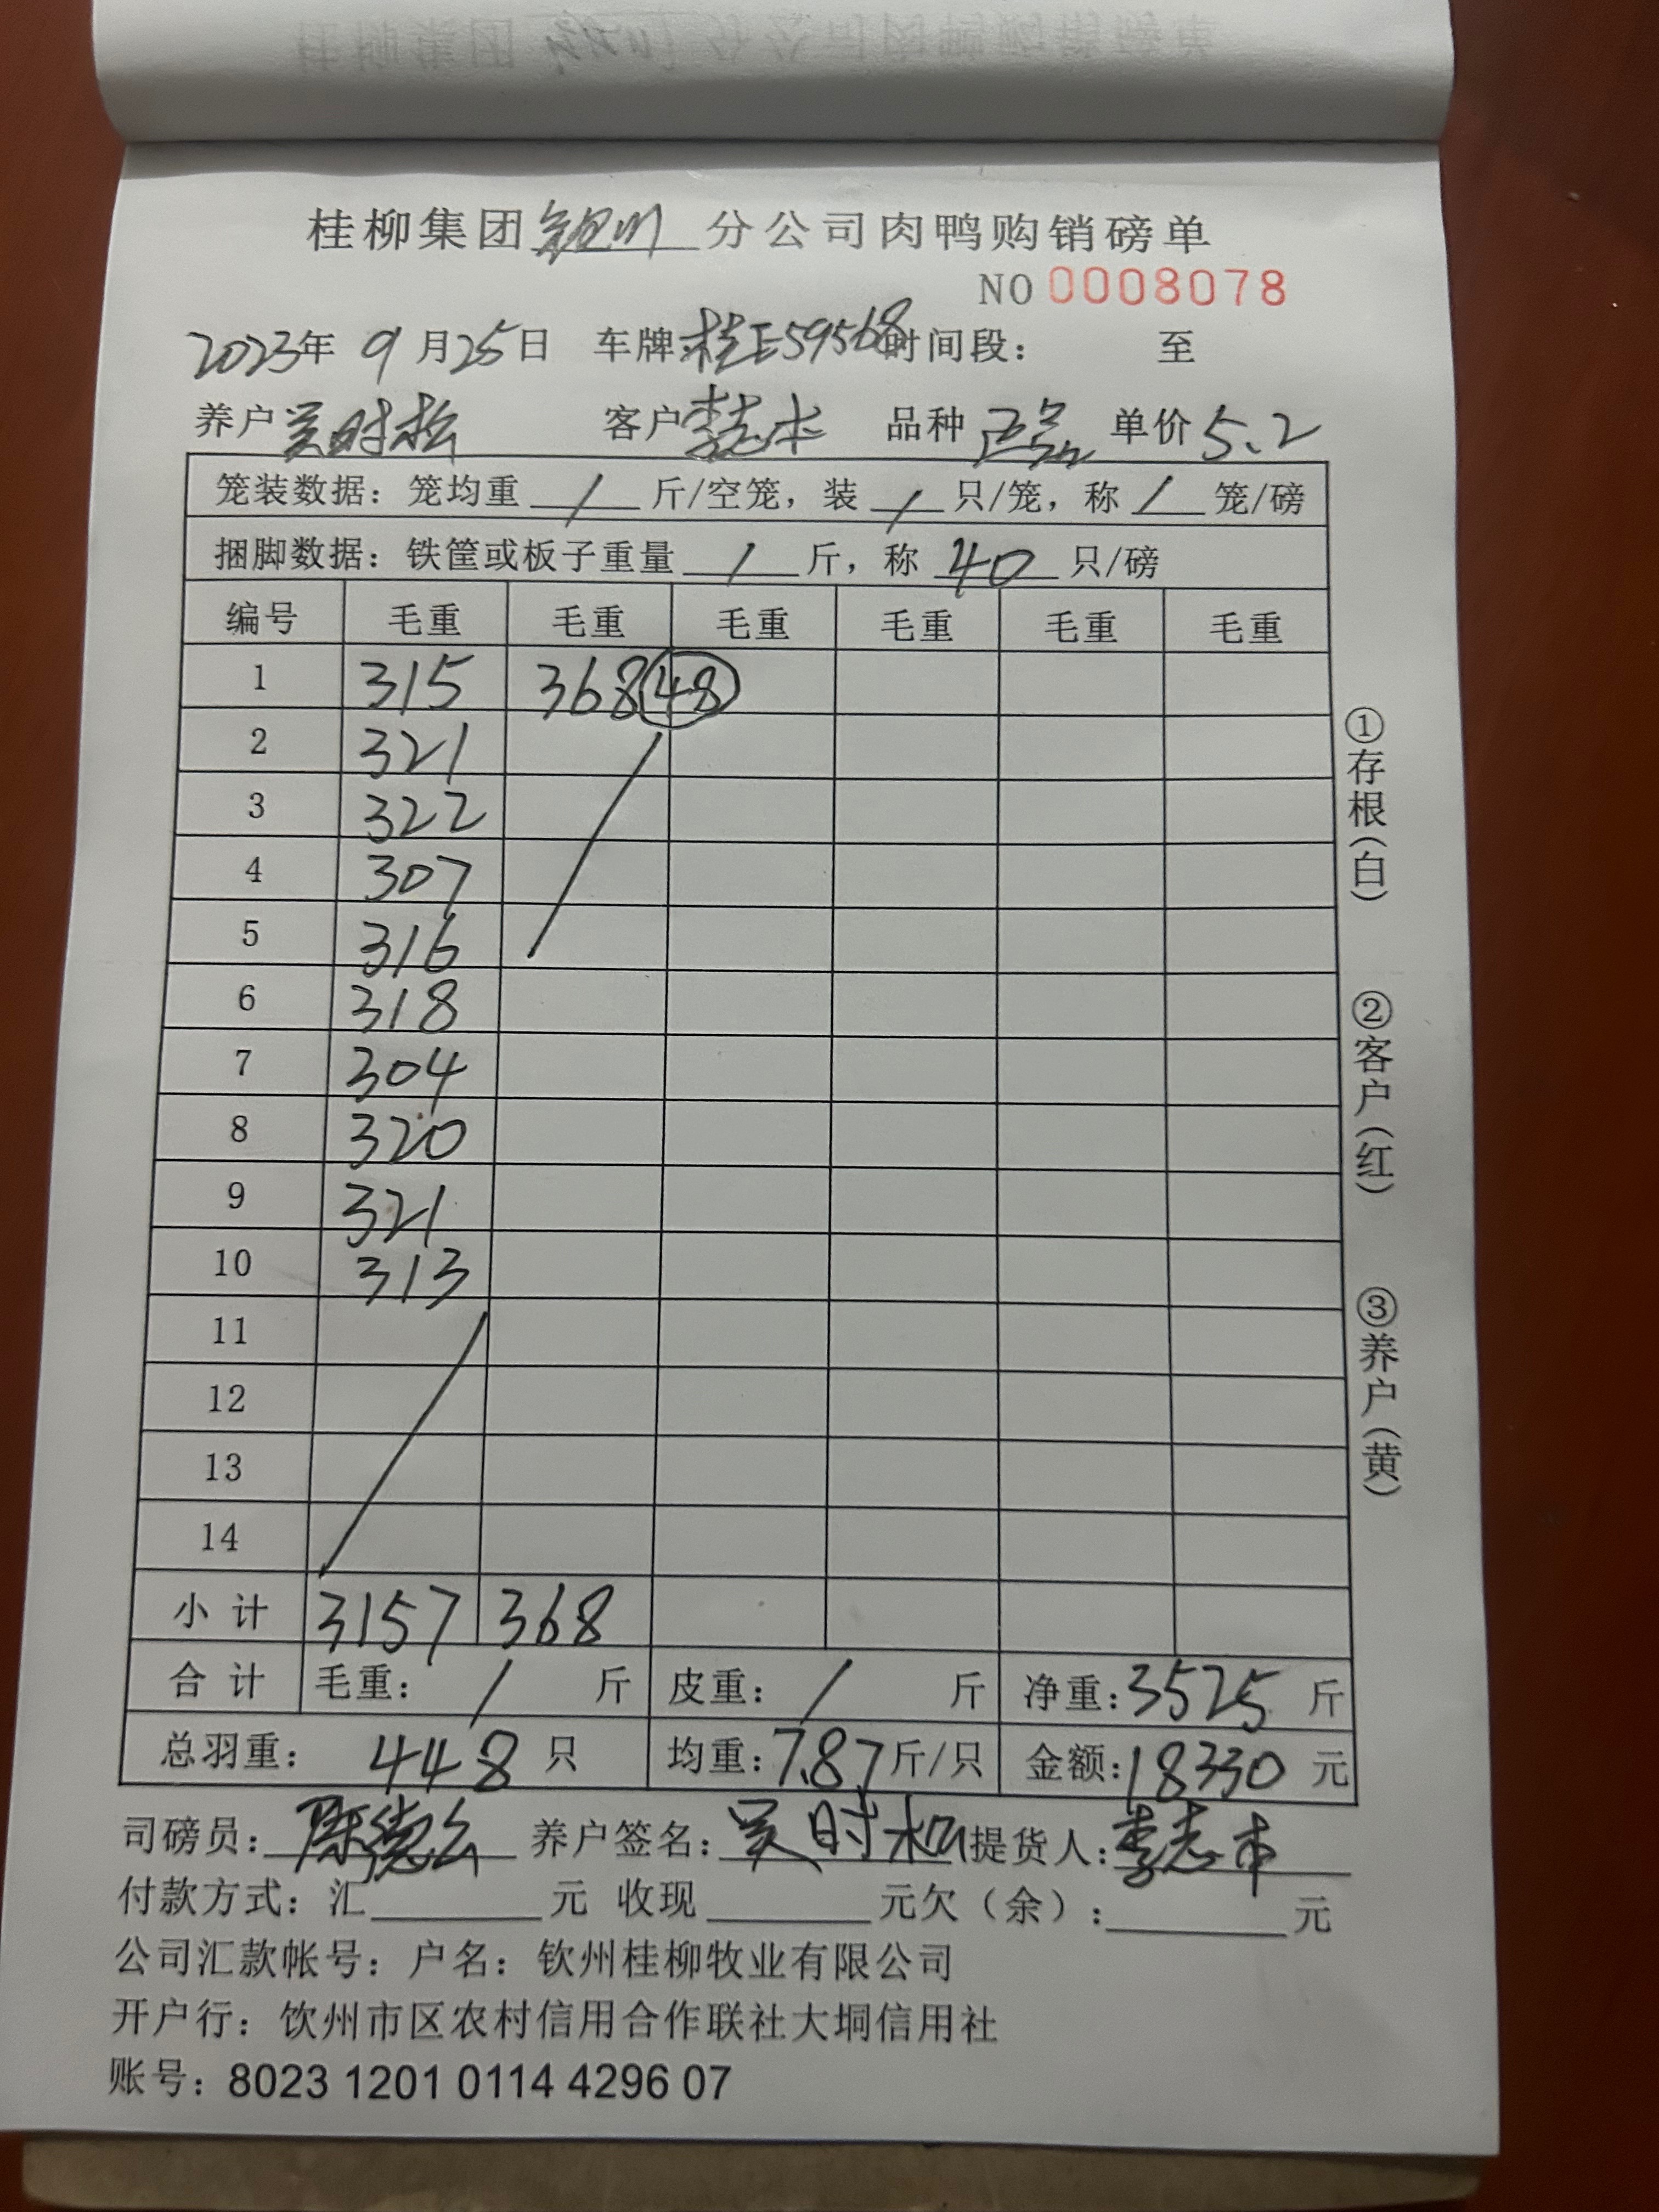 桂柳集团钦州分公司肉鸭购销磅单
NO 0008078
2023年 9月25日 车牌:桂E59568时间段: 至
养户吴时松 客户李志本 品种 单价5.2
笼装数据: 笼均重 / 斤/空笼, 装 / 只/笼, 称 / 笼/磅
捆脚数据: 铁筐或板子重量 / 斤, 称 40 只/磅
编号 毛重 毛重 毛重 毛重 毛重 毛重
1 315 368 48
2 321
3 322
4 307
5 316
6 318
7 304
8 320
9 321
10 313
11
12
13
14
小计 3157 368
合计 毛重: / 斤 皮重: / 斤 净重:3525 斤
总羽重: 448 只 均重:7.87斤/只 金额:18330 元
司磅员: 陈德 养户签名: 吴时松 提货人:李志本
付款方式: 汇 元 收现 元欠(余): 元
公司汇款帐号: 户名: 钦州桂柳牧业有限公司
开户行: 饮州市区农村信用合作联社大垌信用社
账号: 8023 1201 0114 4296 07
①存根(白)
②客户(红)
③养户(黄)